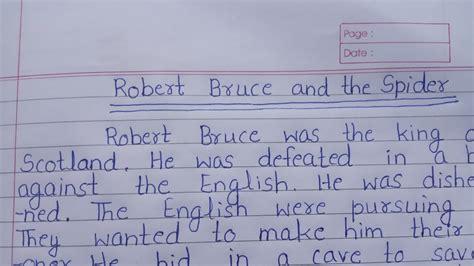 Page :
Date :
Robert Bruce and the Spider
Robert Bruce was the king
Scotland. He was defeated in a
against the English. He was dishe
-ned. The English were pursuing
They wanted to make him their
He hid in a cave to sav